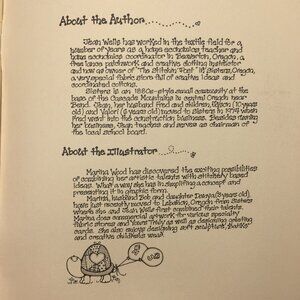 About the Author............
Jean Wells has worked in the textile field for a
number of years as a home economics teacher and
home economics coordinator in Beaverton, Oregon, a
free lance patchwork and creative clothing instructor
and now as owner of "The Stitchin' Post" in Sisters, Oregon,
a very special fabric store full of creative ideas and
coordinated cottons.
Sisters is an 1880s-style small community at the
base of the Cascade Mountains in central Oregon near
Bend. Jean, her husband Fred and children, Jason (10 years
old) and Valori (6 years old) moved to Sisters in 1974 when
Fred went into the construction business. Besides running
her business, Jean teaches and serves as chairman of
the local school board.
About the Illustrator
Marina Wood has discovered the exciting possibilities
of combining her artistic talents with stitchery based
ideas. What a way she has in simplifying a concept and
presenting it in graphic form.
Marina, husband Bob and daughter (3 years old),
have just recently moved to Lebanon, Oregon from Sisters
where she and Jean Wells first combined their talents.
Marina does commercial artwork for various specialty
fabric stores and as well as designing greeting
cards. She also enjoys designing soft sculpture, batiks
and creative childrens wear.